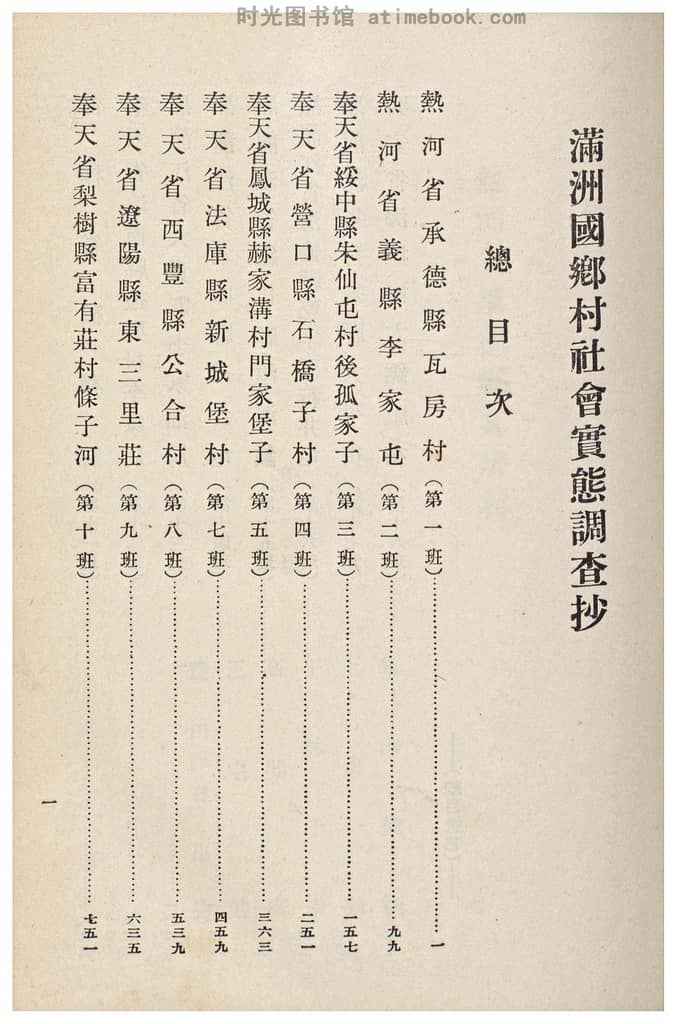 时光图书馆 atimebook.com
滿洲國鄕村社會實態調查抄
總目次
熱河省承德縣瓦房村(第一班)……一
熱河省義縣李家屯(第二班)……九九
奉天省綏中縣朱仙屯村後孤家子(第三班)……一五七
奉天省營口縣石橋子村(第四班)……二五一
奉天省鳳城縣赫家溝村門家堡子(第五班)……三六三
奉天省法庫縣新城堡村(第七班)……四五九
奉天省西豐縣公合村(第八班)……五三九
奉天省遼陽縣東三里莊(第九班)……六三五
奉天省梨樹縣富有莊村條子河(第十班)……七五一
一